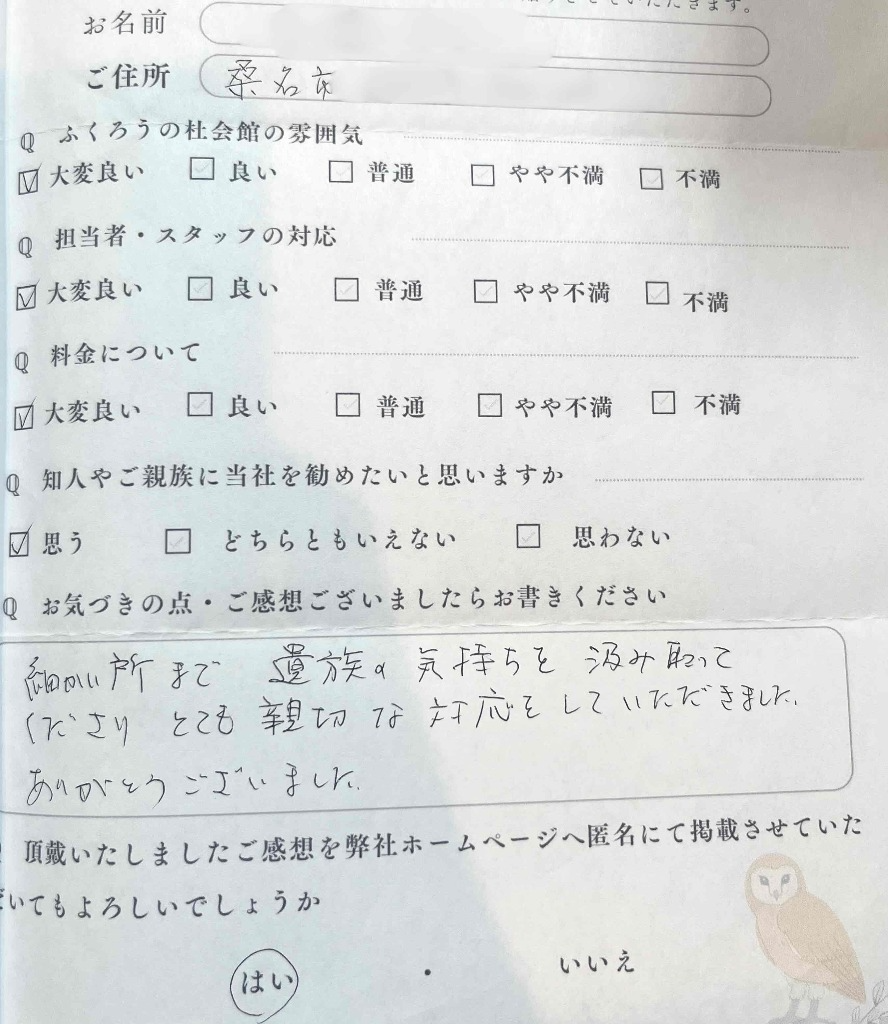 きます。
お名前
ご住所 桑名市
Q ふくろうの杜会館の雰囲気
大変良い 良い 普通 やや不満 不満
Q 担当者・スタッフの対応
大変良い 良い 普通 やや不満 不満
Q 料金について
大変良い 良い 普通 やや不満 不満
Q 知人やご親族に当社を勧めたいと思いますか
思う どちらともいえない 思わない
Q お気づきの点・ご感想ございましたらお書きください
細かい所まで 遺族の 気持ちを 汲み取って
くださり とても 親切な 対応をしていただきました。
ありがとうございました。
頂戴いたしましたご感想を弊社ホームページへ匿名にて掲載させていた
だいてもよろしいでしょうか
はい ・ いいえ